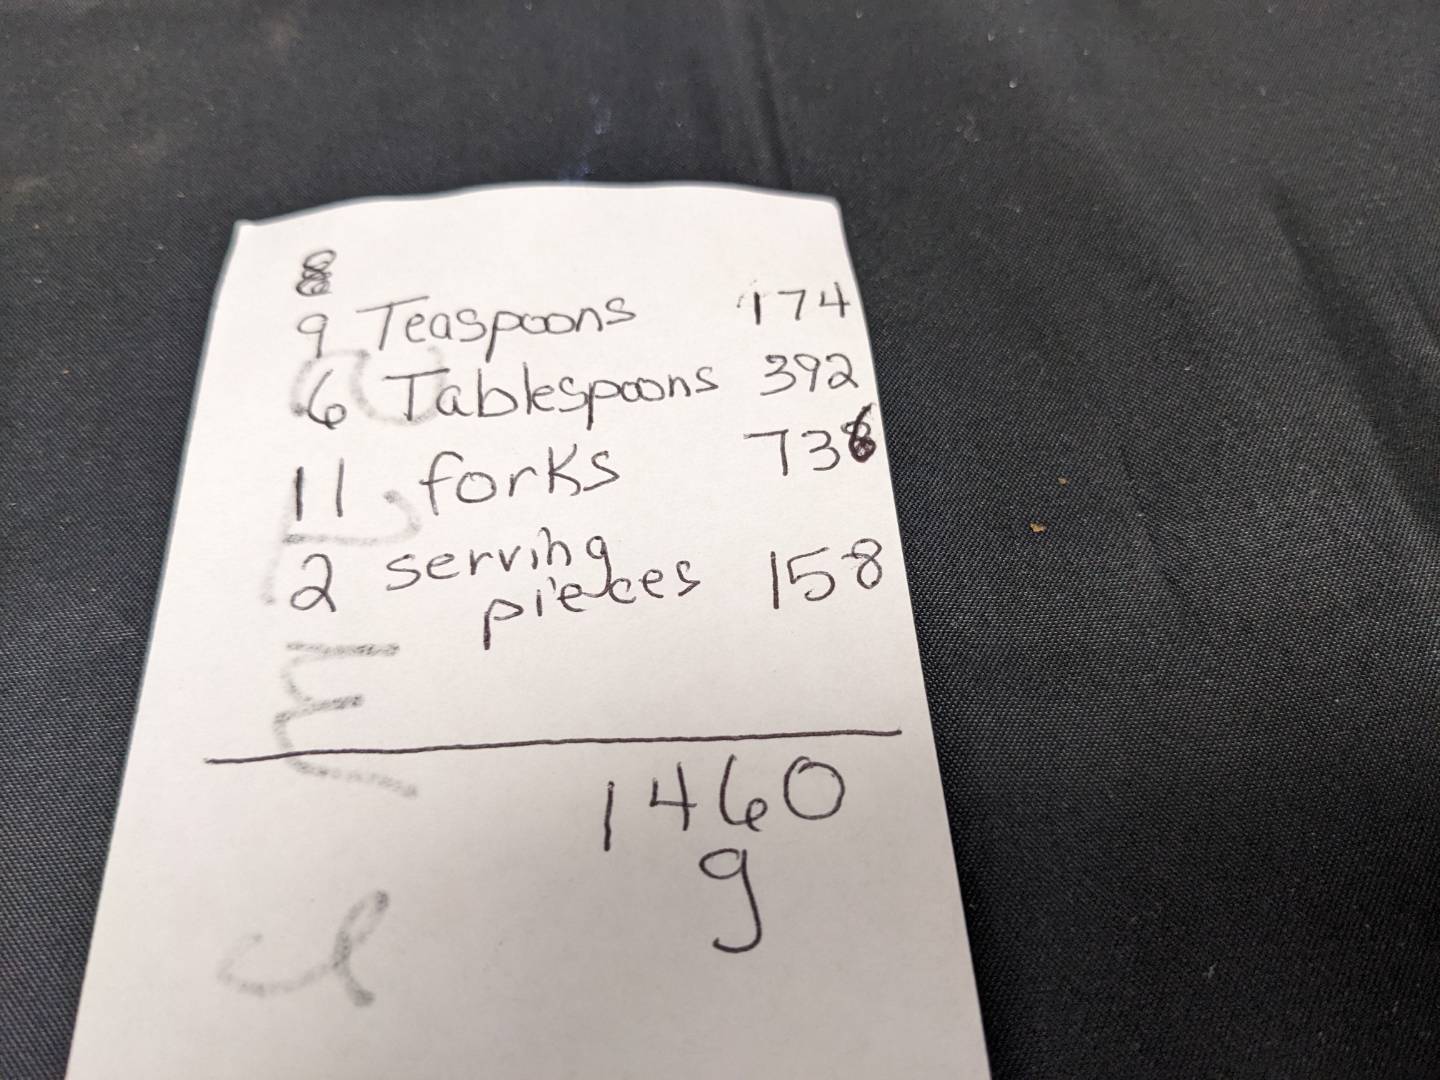 8
9 Teaspoons 174
6 Tablespoons 392
11 forks 736
2 serving
pieces 158
1460
g